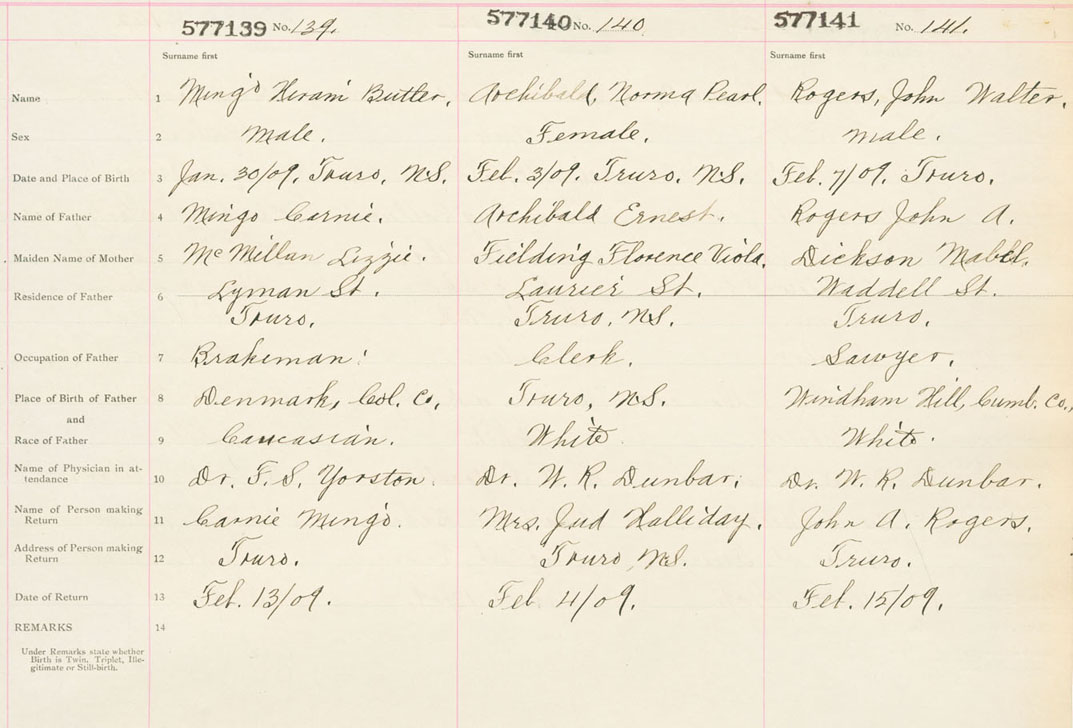 577139 No. 139. 577140 No. 140 577141 No. 141.
Surname first Surname first Surname first
Name 1 Mingo Hiram Butler. Archibald, Norma Pearl. Rogers, John Walter.
Sex 2 Male. Female. Male.
Date and Place of Birth 3 Jan. 30/09. Truro, N.S. Feb. 3/09. Truro. N.S. Feb. 7/09. Truro.
Name of Father 4 Mingo Carnie. Archibald Ernest. Rogers John A.
Maiden Name of Mother 5 McMillan Lizzie. Fielding Florence Viola. Dickson Mabel.
Residence of Father 6 Lyman St. Laurier St. Waddell St.
Truro. Truro, N.S. Truro.
Occupation of Father 7 Brakeman. Clerk. Sawyer.
Place of Birth of Father 8 Denmark, Col. Co. Truro, N.S. Windham Hill, Cumb. Co.,
and
Race of Father 9 Caucasian. White. White.
Name of Physician in at-
tendance 10 Dr. F. S. Yorston. Dr. W. R. Dunbar. Dr. W. R. Dunbar.
Name of Person making
Return 11 Carnie Mingo. Mrs. Jud Halliday. John A. Rogers.
Address of Person making
Return 12 Truro. Truro, N.S. Truro.
Date of Return 13 Feb. 13/09. Feb 4/09. Feb. 15/09.
REMARKS 14
Under Remarks state whether
Birth is Twin, Triplet, Ille-
gitimate or Still-birth.